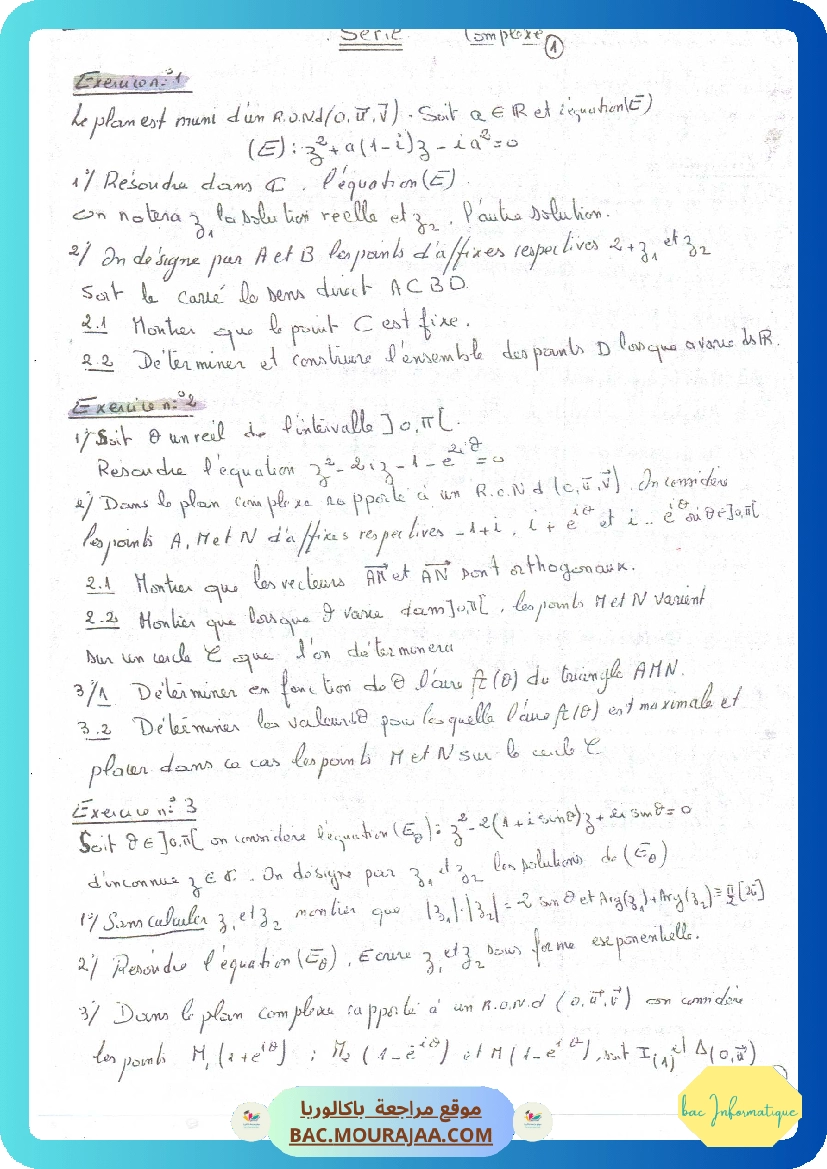 Série Complexe ①
Exercice n°1
Le plan est muni d'un R.O.N.d (O, u⃗, v⃗). Soit a ∈ ℝ et l'équation (E)
(E) : z² + a(1-i)z - ia² = 0
1°/ Résoudre dans ℂ l'équation (E).
on notera z₁ la solution réelle et z₂ l'autre solution.
2°/ On désigne par A et B les points d'affixes respectives 2+z₁ et z₂
Soit le carré de sens direct ACBD.
2.1 Montrer que le point C est fixe.
2.2 Déterminer et construire l'ensemble des points D lorsque a varie ds ℝ.
Exercice n°2
1°/ Soit θ un réel de l'intervalle ]0,π[.
Résoudre l'équation z² - 2iz - 1 - e^{2iθ} = 0
2°/ Dans le plan complexe rapporté à un R.O.N.d (O, u⃗, v⃗). On considère
les points A, M et N d'affixes respectives -1+i, i+e^{iθ} et i-e^{iθ} où θ∈]0,π[
2.1 Montrer que les vecteurs AM⃗ et AN⃗ sont orthogonaux.
2.2 Montrer que lorsque θ varie dans ]0,π[, les points M et N varient
sur un cercle ℰ que l'on déterminera
3°/1 Déterminer en fonction de θ l'aire A(θ) du triangle AMN.
3.2 Déterminer la valeur θ pour laquelle l'aire A(θ) est maximale et
placer dans ce cas les points M et N sur le cercle ℰ
Exercice n° 3
Soit θ∈]0,π[ on considère l'équation (E_θ) : z² - 2(1+i sinθ)z + 2i sinθ = 0
d'inconnue z ∈ ℂ. On désigne par z₁ et z₂ les solutions de (E_θ)
1°/ Sans calculer z₁ et z₂ montrer que |z₁|.|z₂| = 2 sin θ et Arg(z₁)+Arg(z₂) ≡ π/2 [2π]
2°/ Résoudre l'équation (E_θ). Ecrire z₁ et z₂ sous forme exponentielle.
3°/ Dans le plan complexe rapporté à un R.O.N.d (O, u⃗, v⃗) on considère
les points M₁(1+e^{iθ}) ; M₂(1-e^{-iθ}) et M(1-e^{iθ}), soit I(1) et Δ(O, u⃗)
موقع مراجعة باكالوريا
BAC.MOURAJAA.COM
bac Informatique